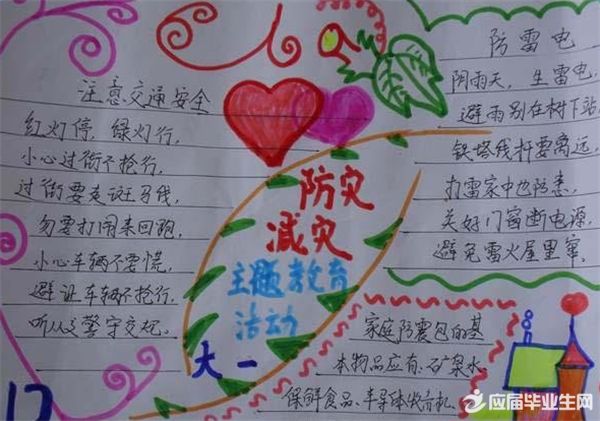 注意交通安全
红灯停，绿灯行，
小心过街不抢行，
过街要走斑马线，
勿要打闹来回跑，
小心车辆不要慌，
避让车辆不抢行，
听从交警守交规。
防灾
减灾
主题教育
活动
大一
防雷电
阴雨天，生雷电，
避雨别在树下站，
铁塔线杆要离远，
打雷家中也防患，
关好门窗断电源，
避免雷火屋里窜。
家庭防震包的基
本物品应有：矿泉水、
保鲜食品、半导体收音机、
应届毕业生网